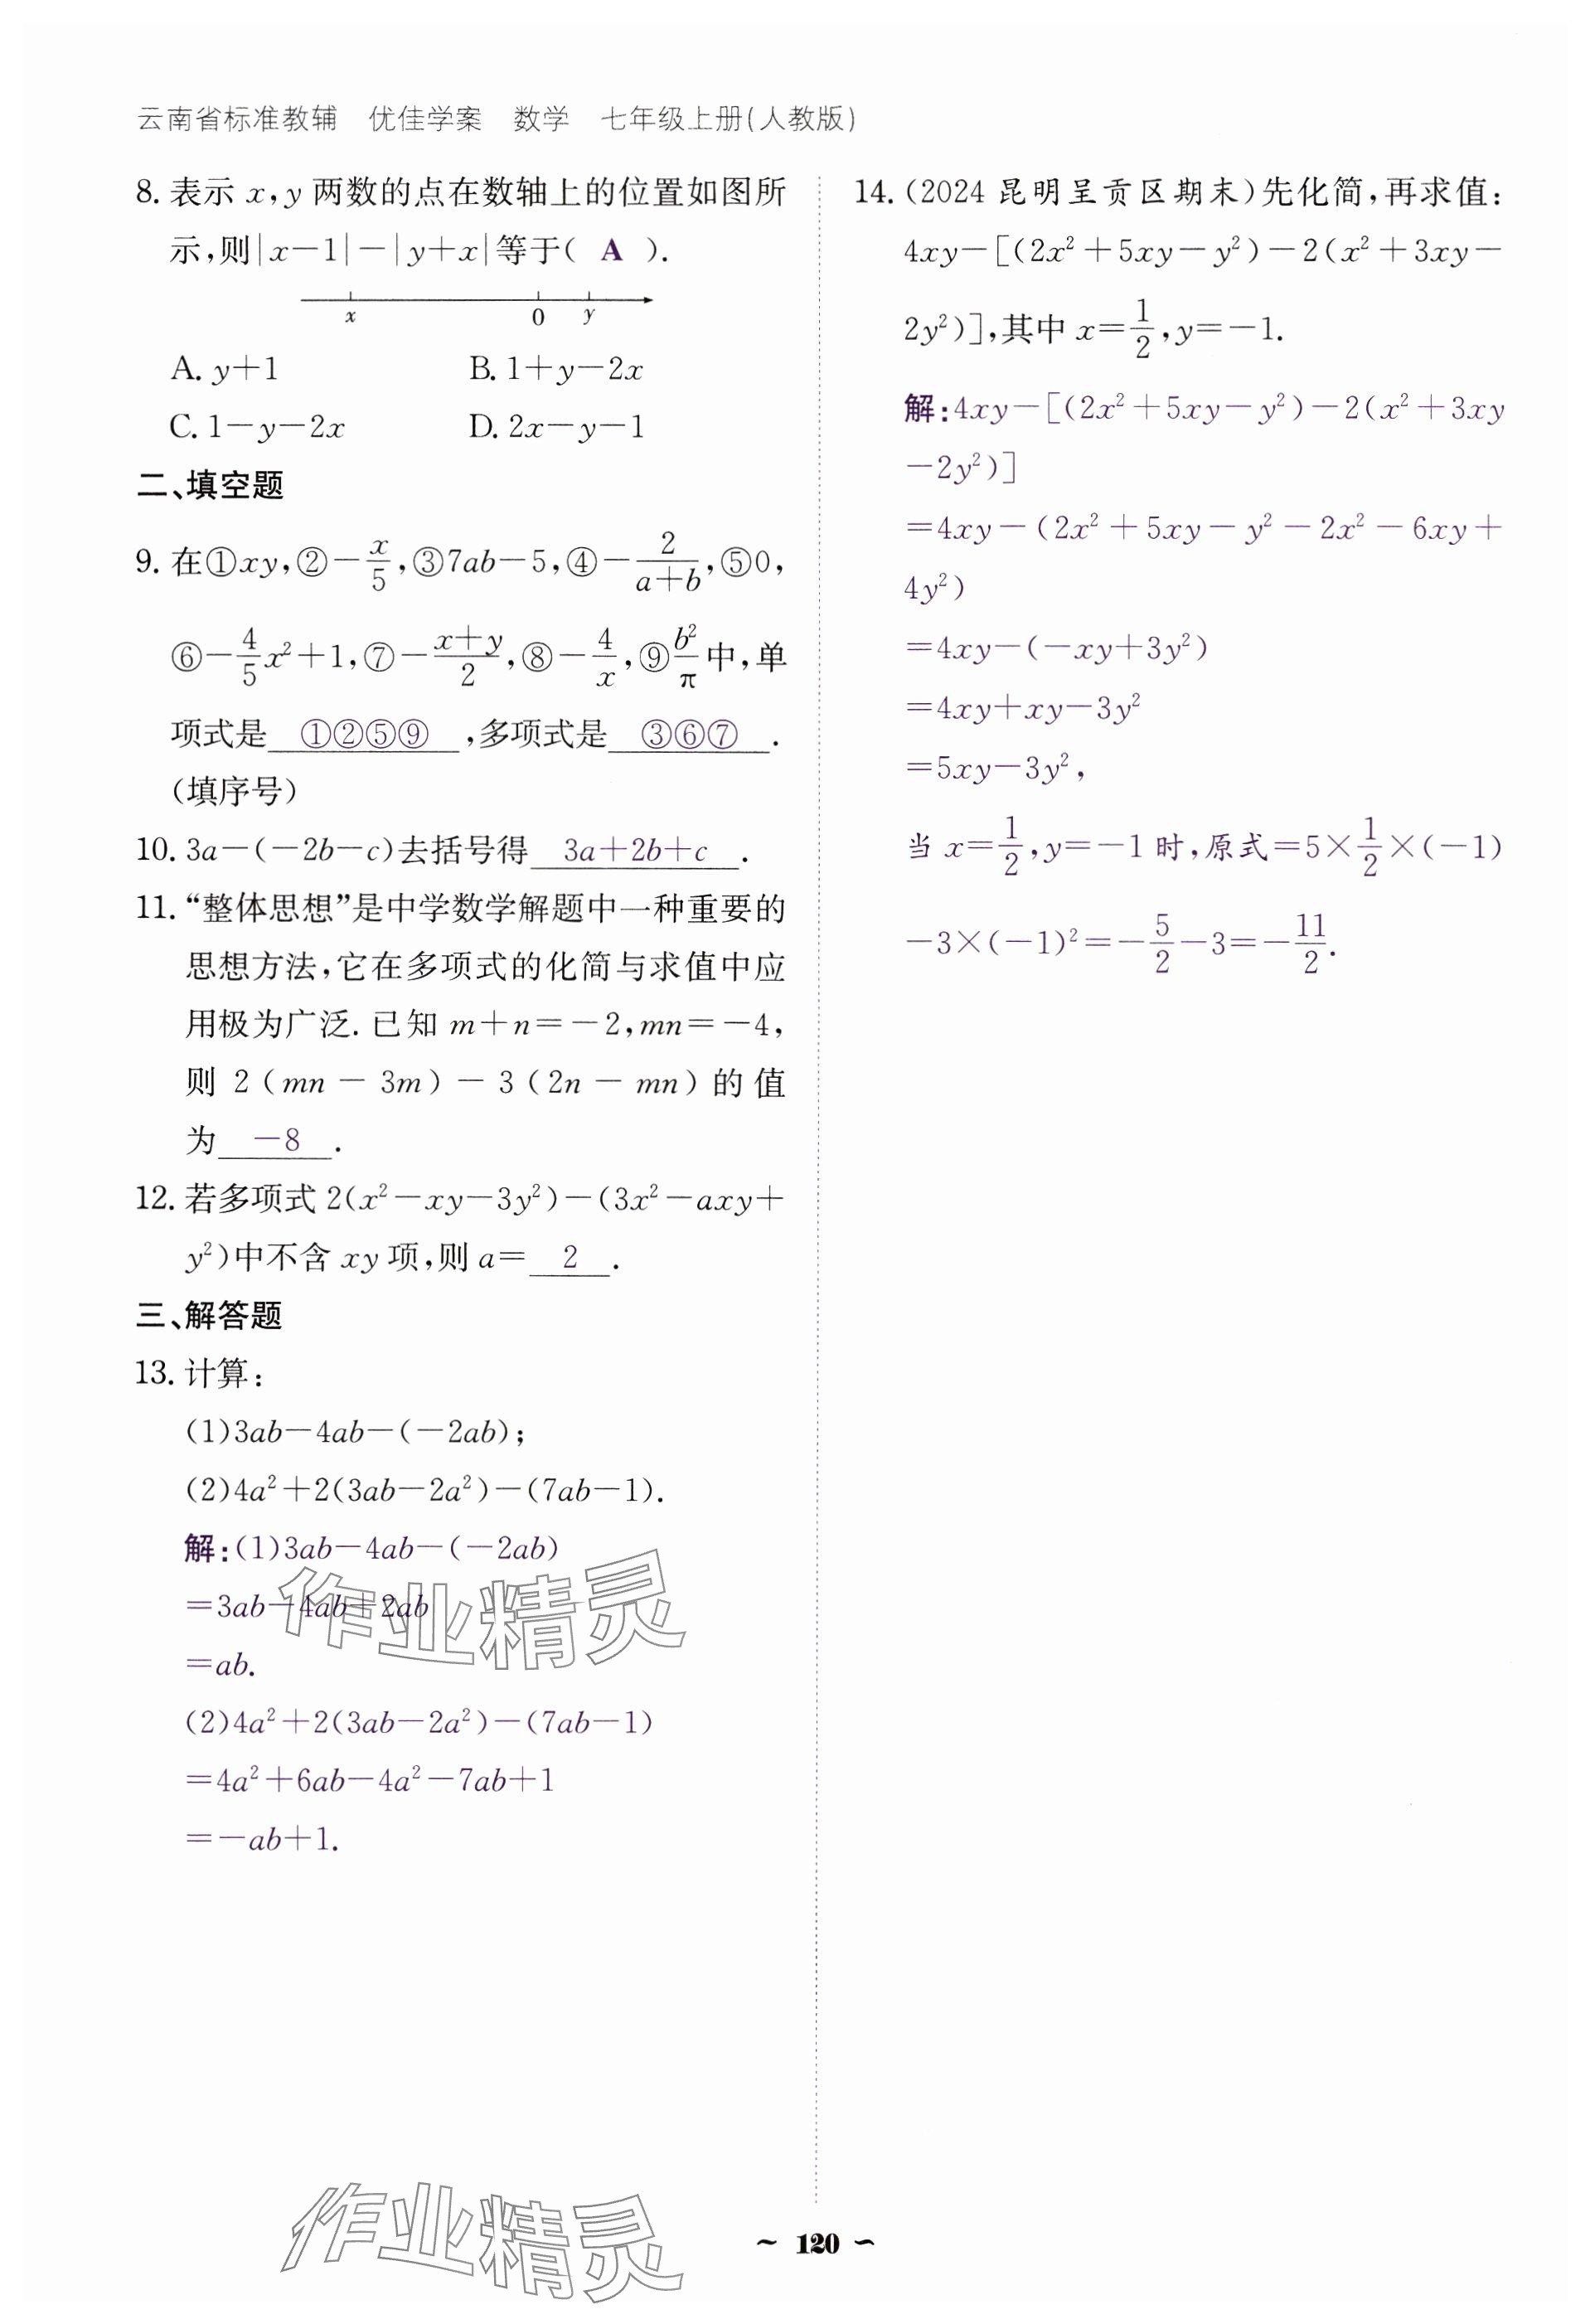 云南省标准教辅 优佳学案 数学 七年级上册(人教版)
8. 表示 x,y 两数的点在数轴上的位置如图所
示,则|x−1|−|y+x|等于( A ).
x 0 y
A. y+1 B. 1+y−2x
C. 1−y−2x D. 2x−y−1
二、填空题
9. 在①xy,②−x/5,③7ab−5,④−2/(a+b),⑤0,
⑥−4/5x²+1,⑦−(x+y)/2,⑧−4/x,⑨b²/π中,单
项式是 ①②⑤⑨ ,多项式是 ③⑥⑦ .
(填序号)
10. 3a−(−2b−c)去括号得 3a+2b+c .
11. “整体思想”是中学数学解题中一种重要的
思想方法,它在多项式的化简与求值中应
用极为广泛. 已知 m+n=−2,mn=−4,
则 2(mn−3m)−3(2n−mn)的值
为 −8 .
12. 若多项式 2(x²−xy−3y²)−(3x²−axy+
y²)中不含 xy 项,则 a= 2 .
三、解答题
13. 计算:
(1)3ab−4ab−(−2ab);
(2)4a²+2(3ab−2a²)−(7ab−1).
解:(1)3ab−4ab−(−2ab)
=3ab−4ab+2ab
=ab.
(2)4a²+2(3ab−2a²)−(7ab−1)
=4a²+6ab−4a²−7ab+1
=−ab+1.
14. (2024 昆明呈贡区期末)先化简,再求值:
4xy−[(2x²+5xy−y²)−2(x²+3xy−
2y²)],其中 x=1/2,y=−1.
解:4xy−[(2x²+5xy−y²)−2(x²+3xy
−2y²)]
=4xy−(2x²+5xy−y²−2x²−6xy+
4y²)
=4xy−(−xy+3y²)
=4xy+xy−3y²
=5xy−3y²,
当 x=1/2,y=−1 时,原式=5×1/2×(−1)
−3×(−1)²=−5/2−3=−11/2.
作业精灵
作业精灵
~ 120 ~